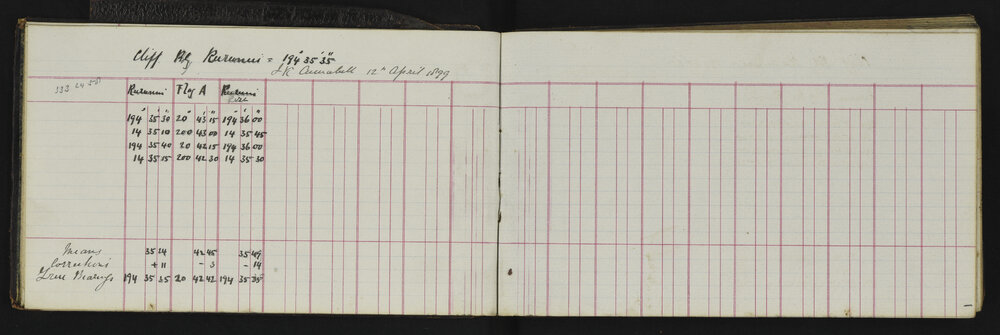 Cliff Rly Rurunui = 194° 35' 35"
12th April 1899
Rurunui Flg A Rurunui
194° 35' 30" 20° 43' 15" 194° 36' 00"
14 35 10 200 43 00 14 35 45
194 35 40 20 42 15 194 36 00
14 35 15 200 42 30 14 35 30
Means 35 24 42 45 35 49
Corrections + 11 - 3 - 14
True Bearings 194 35 35 20 42 42 194 35 35